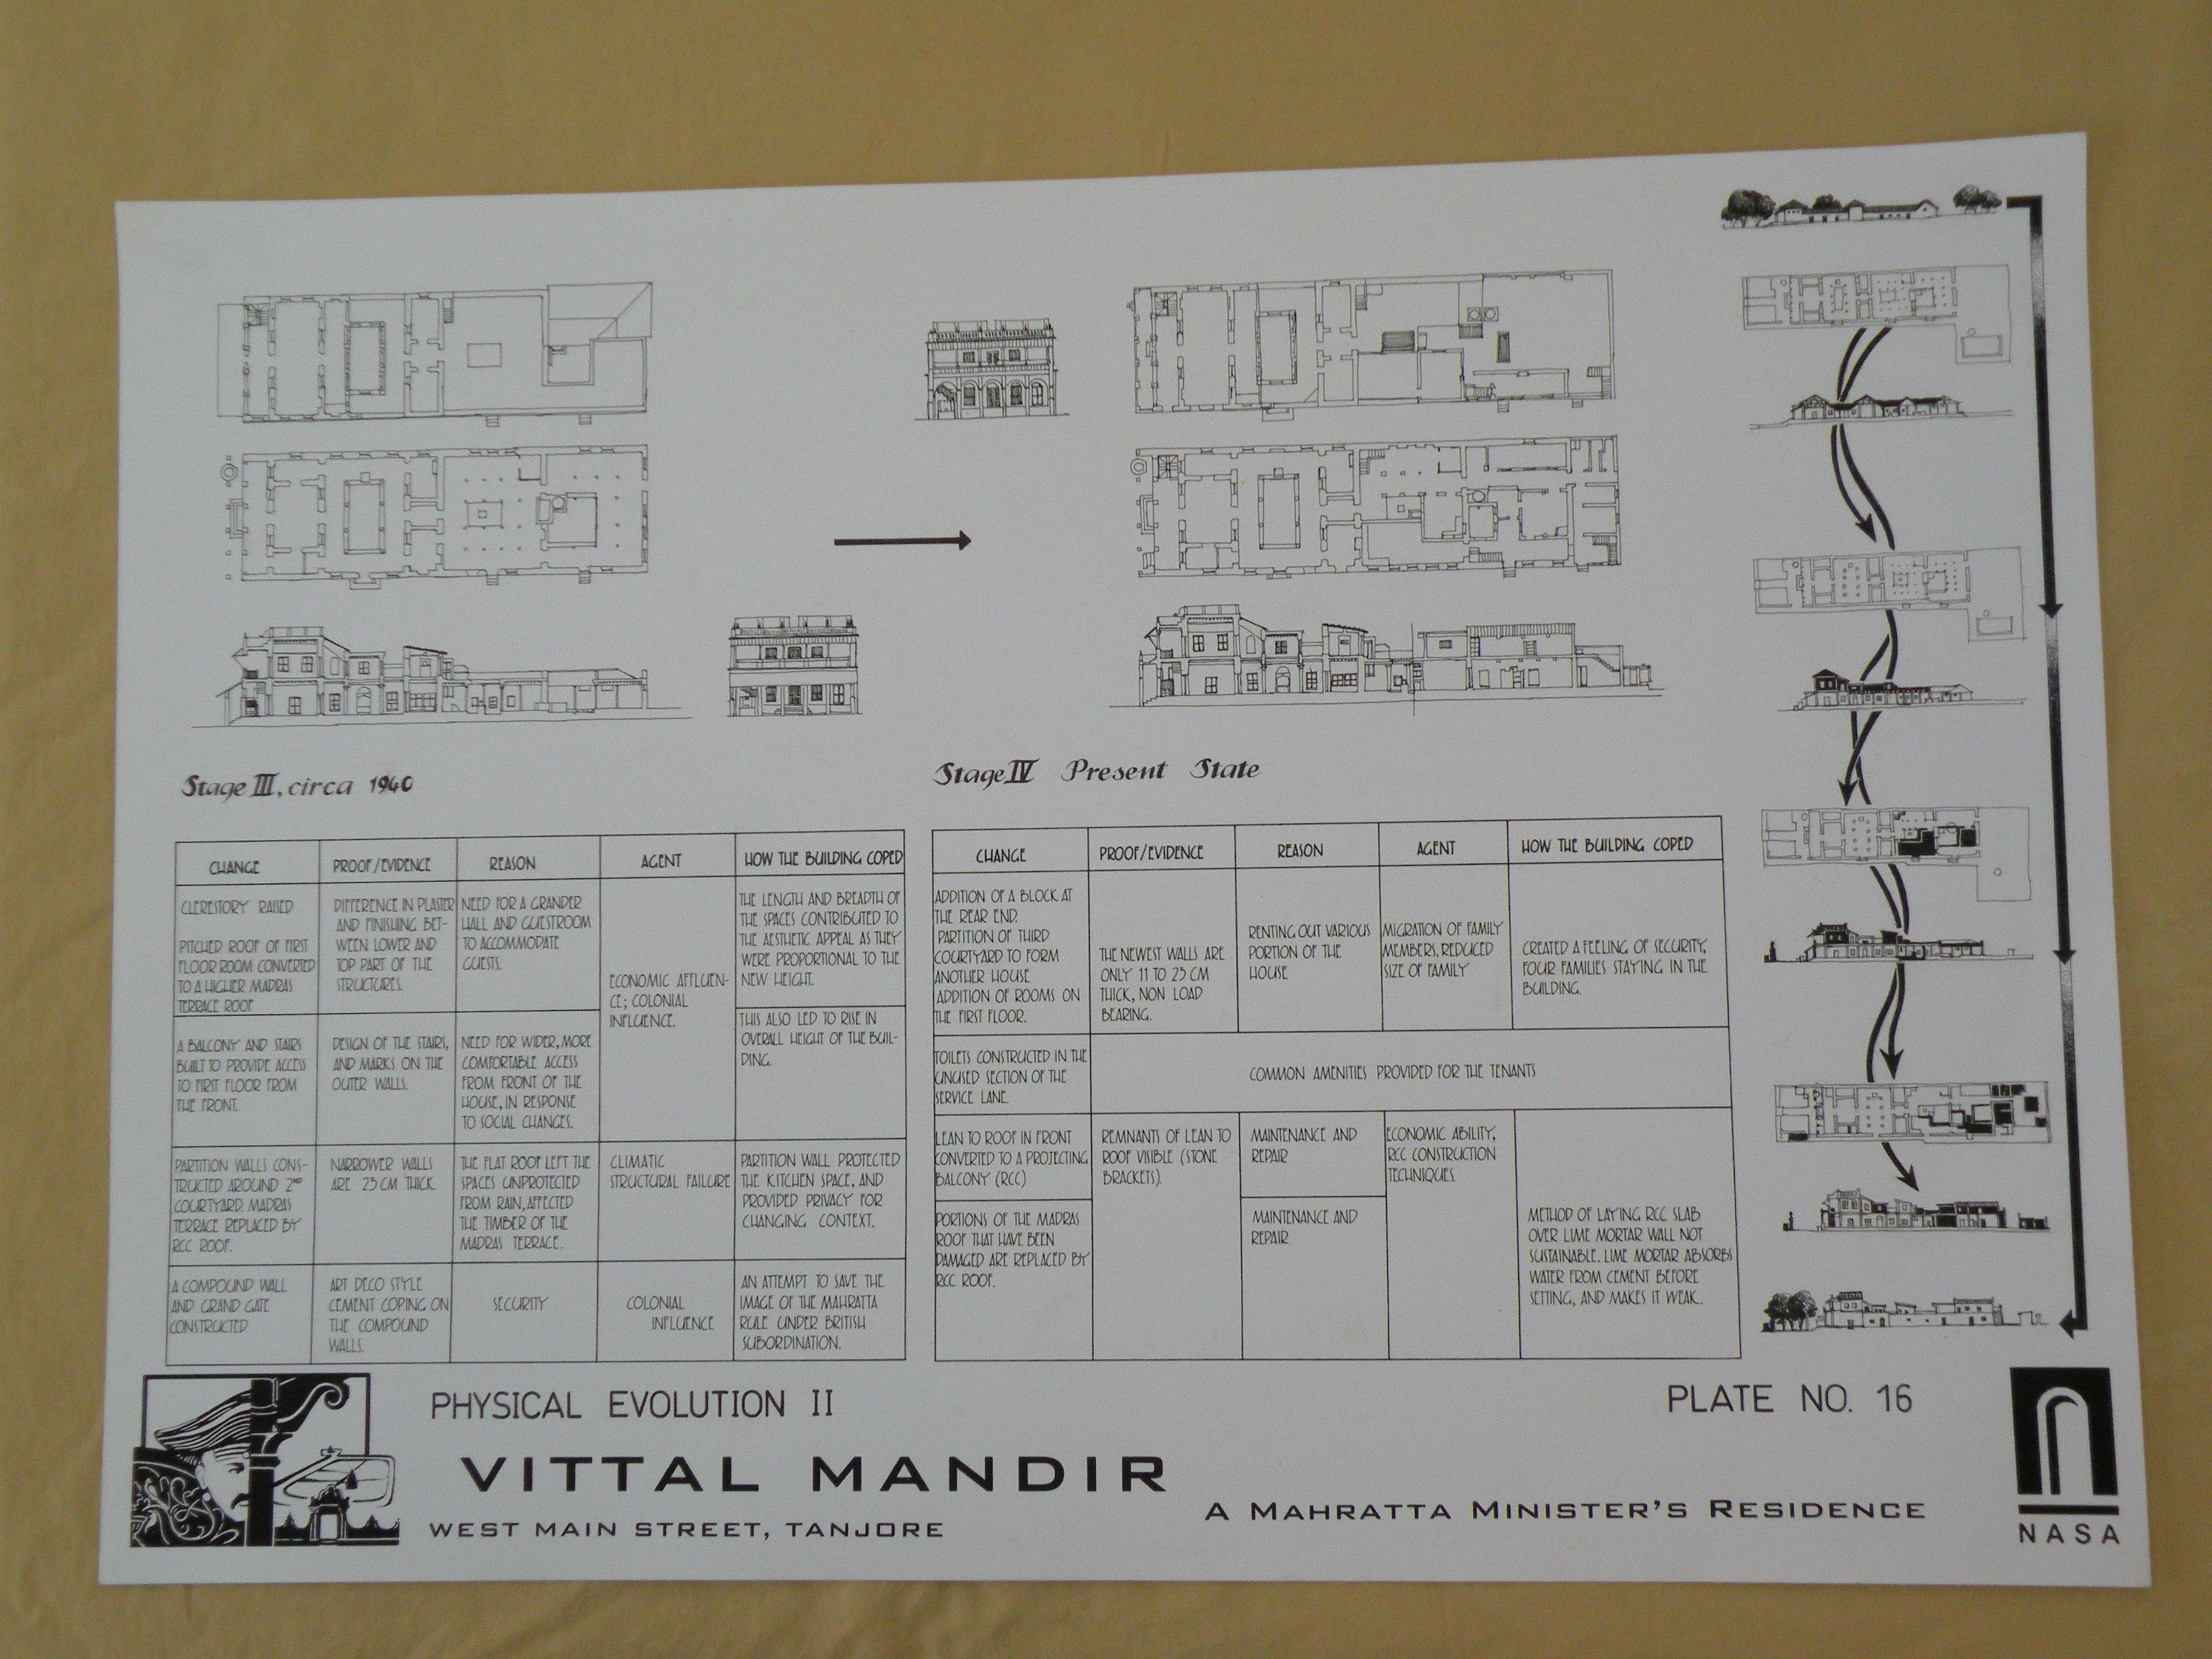 Stage III, circa 1940
CHANGE
PROOF/EVIDENCE
REASON
AGENT
HOW THE BUILDING COPED
CLERESTORY RAISED
PITCHED ROOF OF FIRST
FLOOR ROOM CONVERTED
TO A HIGHER MADRAS
TERRACE ROOF
DIFFERENCE IN PLASTER
AND FINISHING BET-
WEEN LOWER AND
TOP PART OF THE
STRUCTURES.
NEED FOR A GRANDER
HALL AND GUESTROOM
TO ACCOMMODATE
GUESTS.
ECONOMIC AFFLUEN-
CE; COLONIAL
INFLUENCE.
THE LENGTH AND BREADTH OF
THE SPACES CONTRIBUTED TO
THE AESTHETIC APPEAL AS THEY
WERE PROPORTIONAL TO THE
NEW HEIGHT.
A BALCONY AND STAIRS
BUILT TO PROVIDE ACCESS
TO FIRST FLOOR FROM
THE FRONT.
DESIGN OF THE STAIRS,
AND MARKS ON THE
OUTER WALLS.
NEED FOR WIDER, MORE
COMFORTABLE ACCESS
FROM FRONT OF THE
HOUSE, IN RESPONSE
TO SOCIAL CHANGES.
THIS ALSO LED TO RISE IN
OVERALL HEIGHT OF THE BUIL-
DING.
PARTITION WALLS CONS-
TRUCTED AROUND 2ND
COURTYARD. MADRAS
TERRACE REPLACED BY
RCC ROOF.
NARROWER WALLS
ARE 23 CM THICK.
THE FLAT ROOF LEFT THE
SPACES UNPROTECTED
FROM RAIN, AFFECTED
THE TIMBER OF THE
MADRAS TERRACE.
CLIMATIC
STRUCTURAL FAILURE
PARTITION WALL PROTECTED
THE KITCHEN SPACE, AND
PROVIDED PRIVACY FOR
CHANGING CONTEXT.
A COMPOUND WALL
AND GRAND GATE
CONSTRUCTED
ART DECO STYLE
CEMENT COPING ON
THE COMPOUND
WALLS.
SECURITY
COLONIAL
INFLUENCE
AN ATTEMPT TO SAVE THE
IMAGE OF THE MAHRATTA
RULE UNDER BRITISH
SUBORDINATION.
Stage IV Present State
CHANGE
PROOF/EVIDENCE
REASON
AGENT
HOW THE BUILDING COPED
ADDITION OF A BLOCK AT
THE REAR END.
PARTITION OF THIRD
COURTYARD TO FORM
ANOTHER HOUSE
ADDITION OF ROOMS ON
THE FIRST FLOOR.
THE NEWEST WALLS ARE
ONLY 11 TO 23 CM
THICK, NON LOAD
BEARING.
RENTING OUT VARIOUS
PORTION OF THE
HOUSE
MIGRATION OF FAMILY
MEMBERS. REDUCED
SIZE OF FAMILY
CREATED A FEELING OF SECURITY,
FOUR FAMILIES STAYING IN THE
BUILDING.
TOILETS CONSTRUCTED IN THE
UNUSED SECTION OF THE
SERVICE LANE.
COMMON AMENITIES PROVIDED FOR THE TENANTS
LEAN TO ROOF IN FRONT
CONVERTED TO A PROJECTING
BALCONY (RCC)
REMNANTS OF LEAN TO
ROOF VISIBLE (STONE
BRACKETS).
MAINTENANCE AND
REPAIR
ECONOMIC ABILITY,
RCC CONSTRUCTION
TECHNIQUES.
PORTIONS OF THE MADRAS
ROOF THAT HAVE BEEN
DAMAGED ARE REPLACED BY
RCC ROOF.
MAINTENANCE AND
REPAIR
METHOD OF LAYING RCC SLAB
OVER LIME MORTAR WALL NOT
SUSTAINABLE. LIME MORTAR ABSORBS
WATER FROM CEMENT BEFORE
SETTING, AND MAKES IT WEAK.
PHYSICAL EVOLUTION II
PLATE NO. 16
VITTAL MANDIR
A MAHRATTA MINISTER'S RESIDENCE
WEST MAIN STREET, TANJORE
NASA